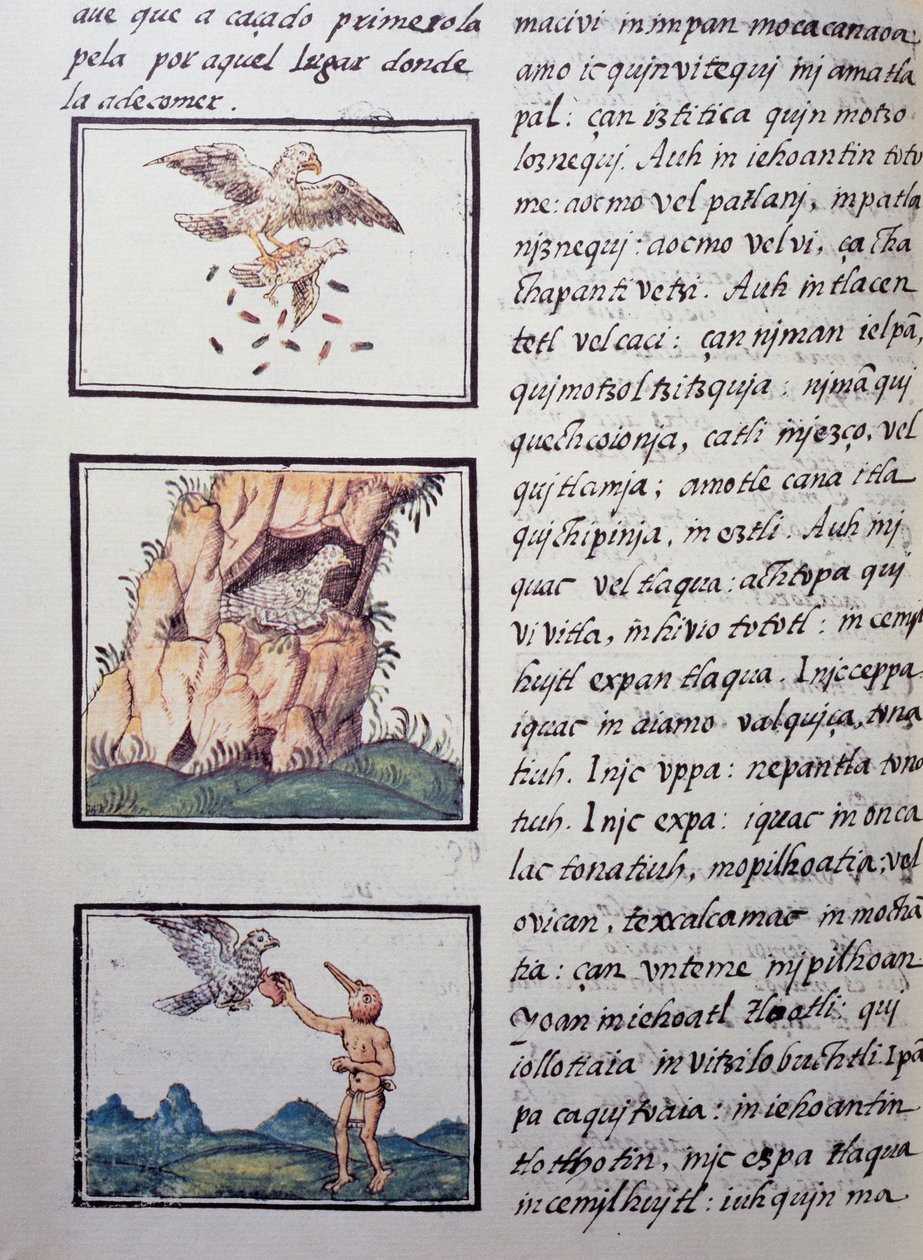 aue que a caçado primero la
pela por aquel lugar donde
la adecomer.
macivi in impan mocacanaoa:
amo ic qujnvitequj inj amatla
pal: çan iztitica qujn motzo
loznequj. Auh in iehoantin toto
me: aocmo vel patlanj, inpatla
njznequj: aocmo velvi, ça cha
chapantivetzi. Auh in tlacen
tetl velcaci: çan njman ielpã,
qujmotzoltzitzquja: njmã quj
quechcoionja, catli injezço, vel
qujtlamja; amotle cana itla
qujchipinja, in eztli. Auh inj
quac vel tlaqua: achtopa quj
vi vitla, in hivio tototl: in cemjl
hujtl expan tlaqua. Injc ceppa
iquac in aiamo valquiça, tona
tiuh. Injc vppa: nepantla tona
tiuh. Injc expa: iquac in onca
lac tonatiuh, mopilhoatia; vel
ovican, texcalcamac in mochã
tia: çan vnteme njpilhoan
Yoan in iehoatl tlootli: quj
iollotiaia in vitzilobuchtli: Ipã
pa caqujtoaia: in iehoantin
tlothotin, injc espa tlaqua
in cemjlhujtl: iuhqujn ma